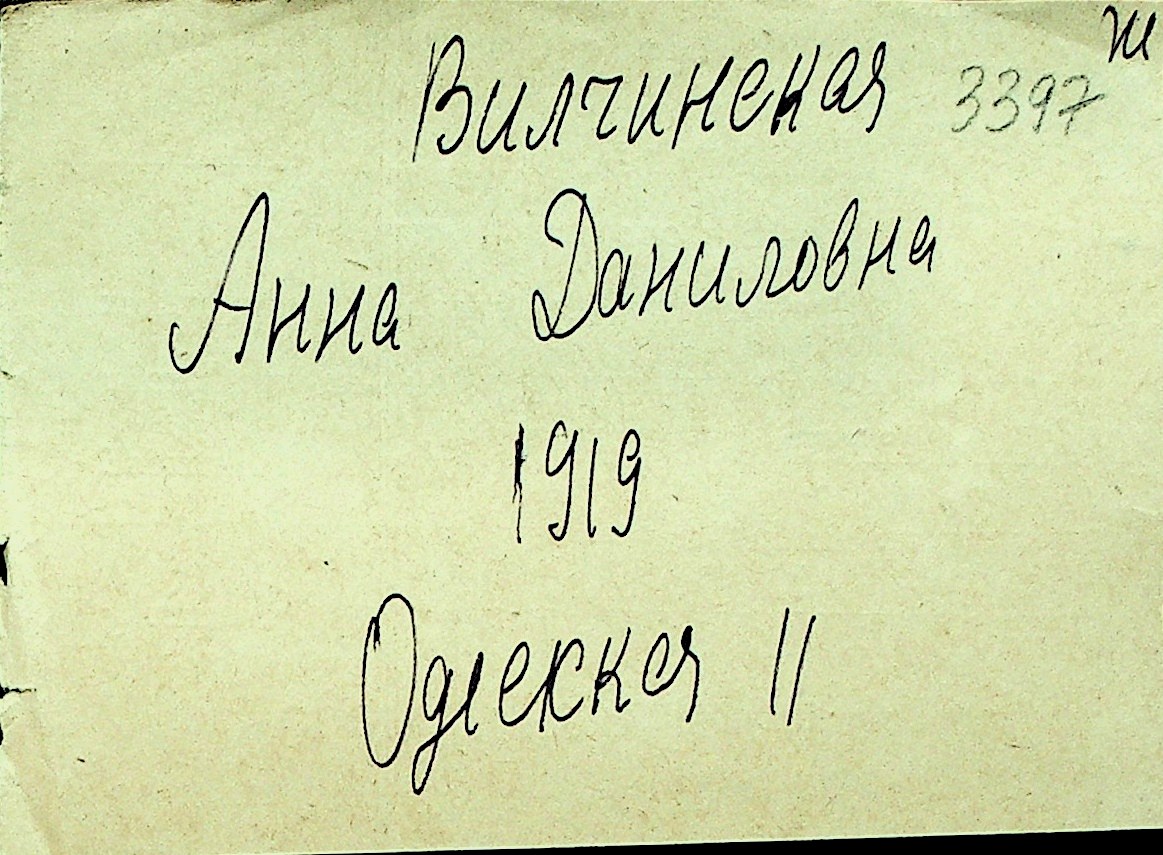 Ж
Вилчинская 3397
Анна Даниловна
1919
Одесская 11